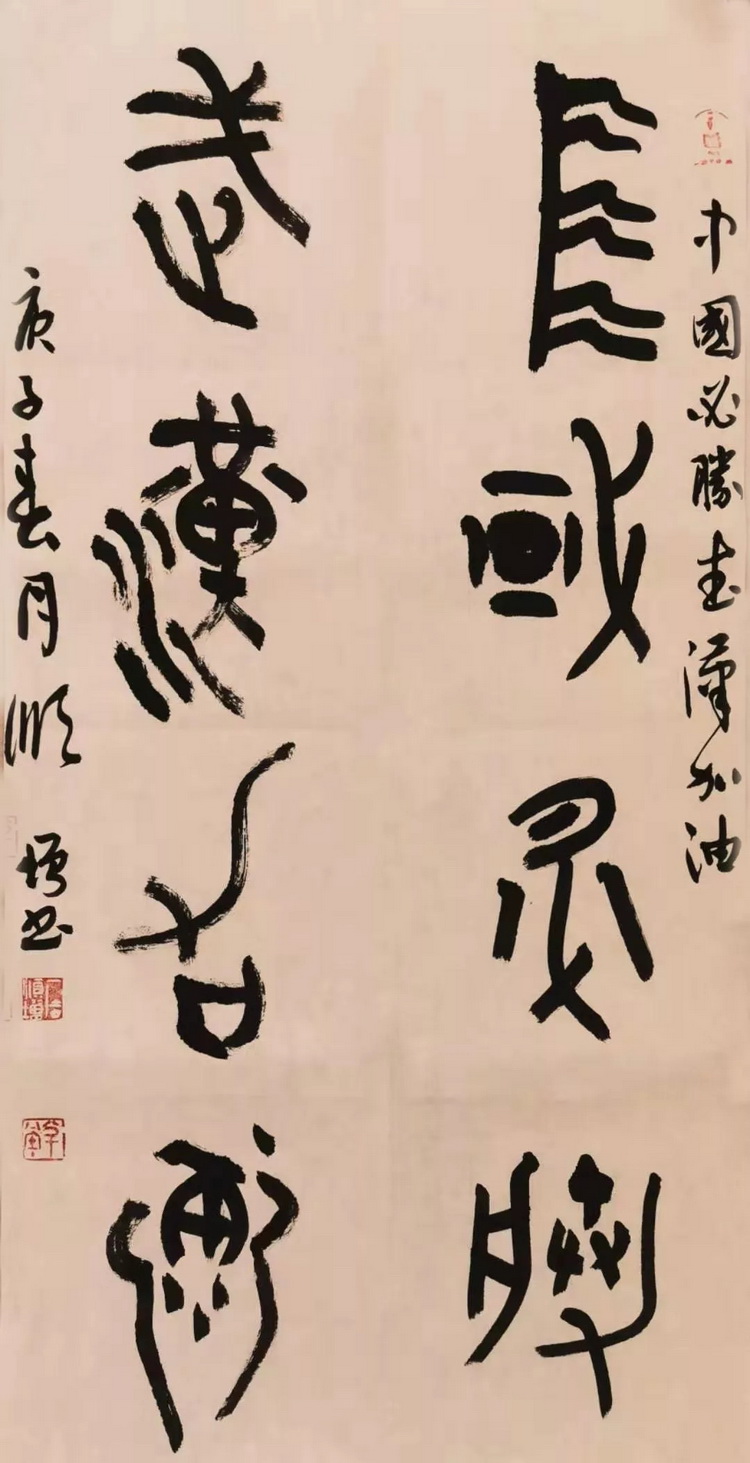 中國必勝武漢加油
中國必勝
武漢加油
庚子春月順增書